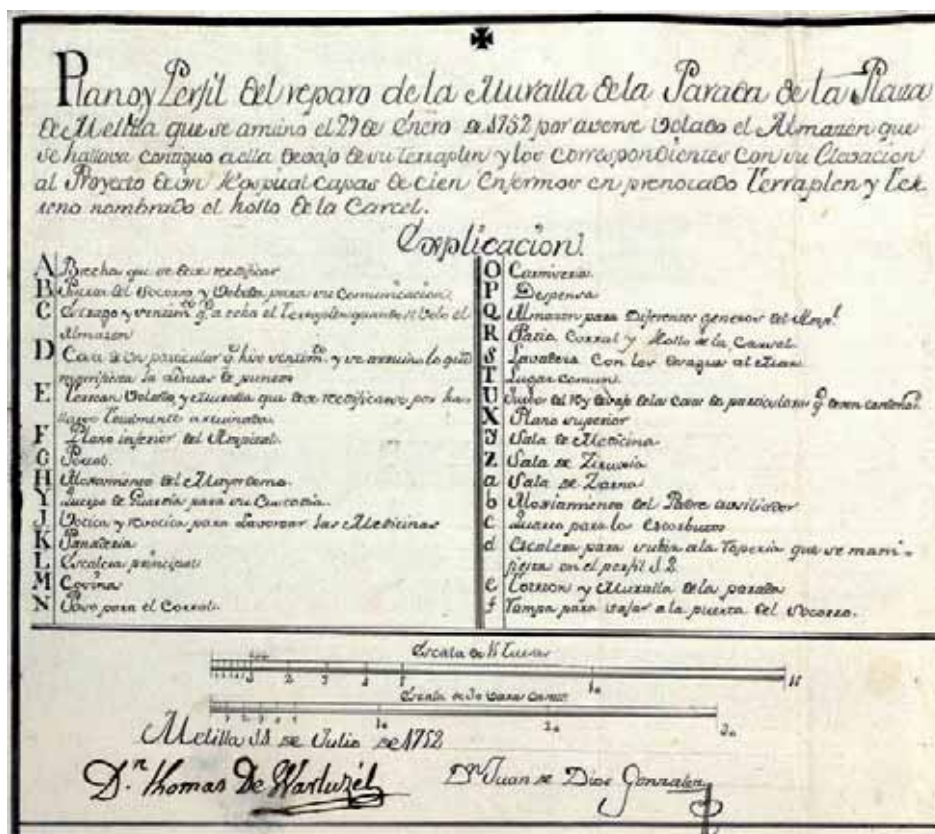 Plano y Perfil del reparo de la Muralla de la Parada de la Plaza
de Melilla que se arruino el 27 de Enero de 1752 por averse Volado el Almazen que
se hallava contiguo a ella devajo de su Terraplen y los correspondientes con su Elevacion
al Proyecto de un Hospital capas de cien Enfermos en prenotado Terraplen y Ter
reno nombrado el hollo de la Carcel.
Explicacion
A Brecha que se deve rectificar
B Puerta del Socorro y Vobeda para su Comunicacion
C y que a echo el Terraplen quando se Volo el
Almazen
D Casa de un particular q hizo y se arruino
manifiesta la de puntos
E y Muralla que deve rectificarse por ha
llarse totalmente arruinada
F Plano inferior del Hospital
G Portal
H Aloxamiento del Mayordomo
Y Cuerpo de Guardia para su Custodia
J Votica y para Lavorar las Medicinas
K Panateria
L Escalera principal
M Cocina
N Paso para el Corral
O Carniceria
P Despensa
Q Almazen para Diferentes generos del Hospl
R Patio Corral y Hollo de la Carcel
S Lavadero con los desagues al Mar
T Lugar comun
U del Rey devajo de las Casas de particulares q
X Plano superior
Y Sala de Medicina
Z Sala de Zirugia
a Sala de
b Aloxiamiento del Padre auxiliador
c Quarto para los
d Escalera para subir a la que se mani-
fiesta en el perfil 1.2
e Torreon y Muralla de la parada
f Rampa para vajar a la puerta del Socorro
Escala de 15 Tuesas
1 2 3 4 5 10 15
Escala de 30 Varas
1 2 3 4 5 10 20 30
Melilla 11 de Julio de 1752
Dn Thomas De Warluzèl Dn Juan de Dios Gonzalez